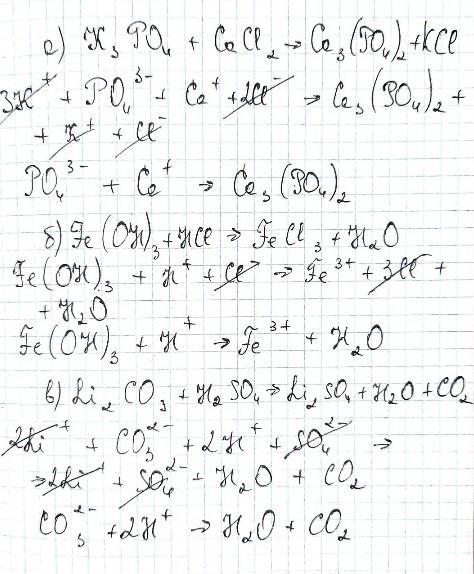 а) K₃PO₄ + CaCl₂ → Ca₃(PO₄)₂ + KCl
3K⁺ + PO₄³⁻ + Ca⁺ + 2Cl⁻ → Ca₃(PO₄)₂ +
+ K⁺ + Cl⁻
PO₄³⁻ + Ca⁺ → Ca₃(PO₄)₂
б) Fe(OH)₃ + HCl → FeCl₃ + H₂O
Fe(OH)₃ + H⁺ + Cl⁻ → Fe³⁺ + 3Cl⁻ +
+ H₂O
Fe(OH)₃ + H⁺ → Fe³⁺ + H₂O
в) Li₂CO₃ + H₂SO₄ → Li₂SO₄ + H₂O + CO₂
2Li⁺ + CO₃²⁻ + 2H⁺ + SO₄²⁻ →
→ 2Li⁺ + SO₄²⁻ + H₂O + CO₂
CO₃²⁻ + 2H⁺ → H₂O + CO₂